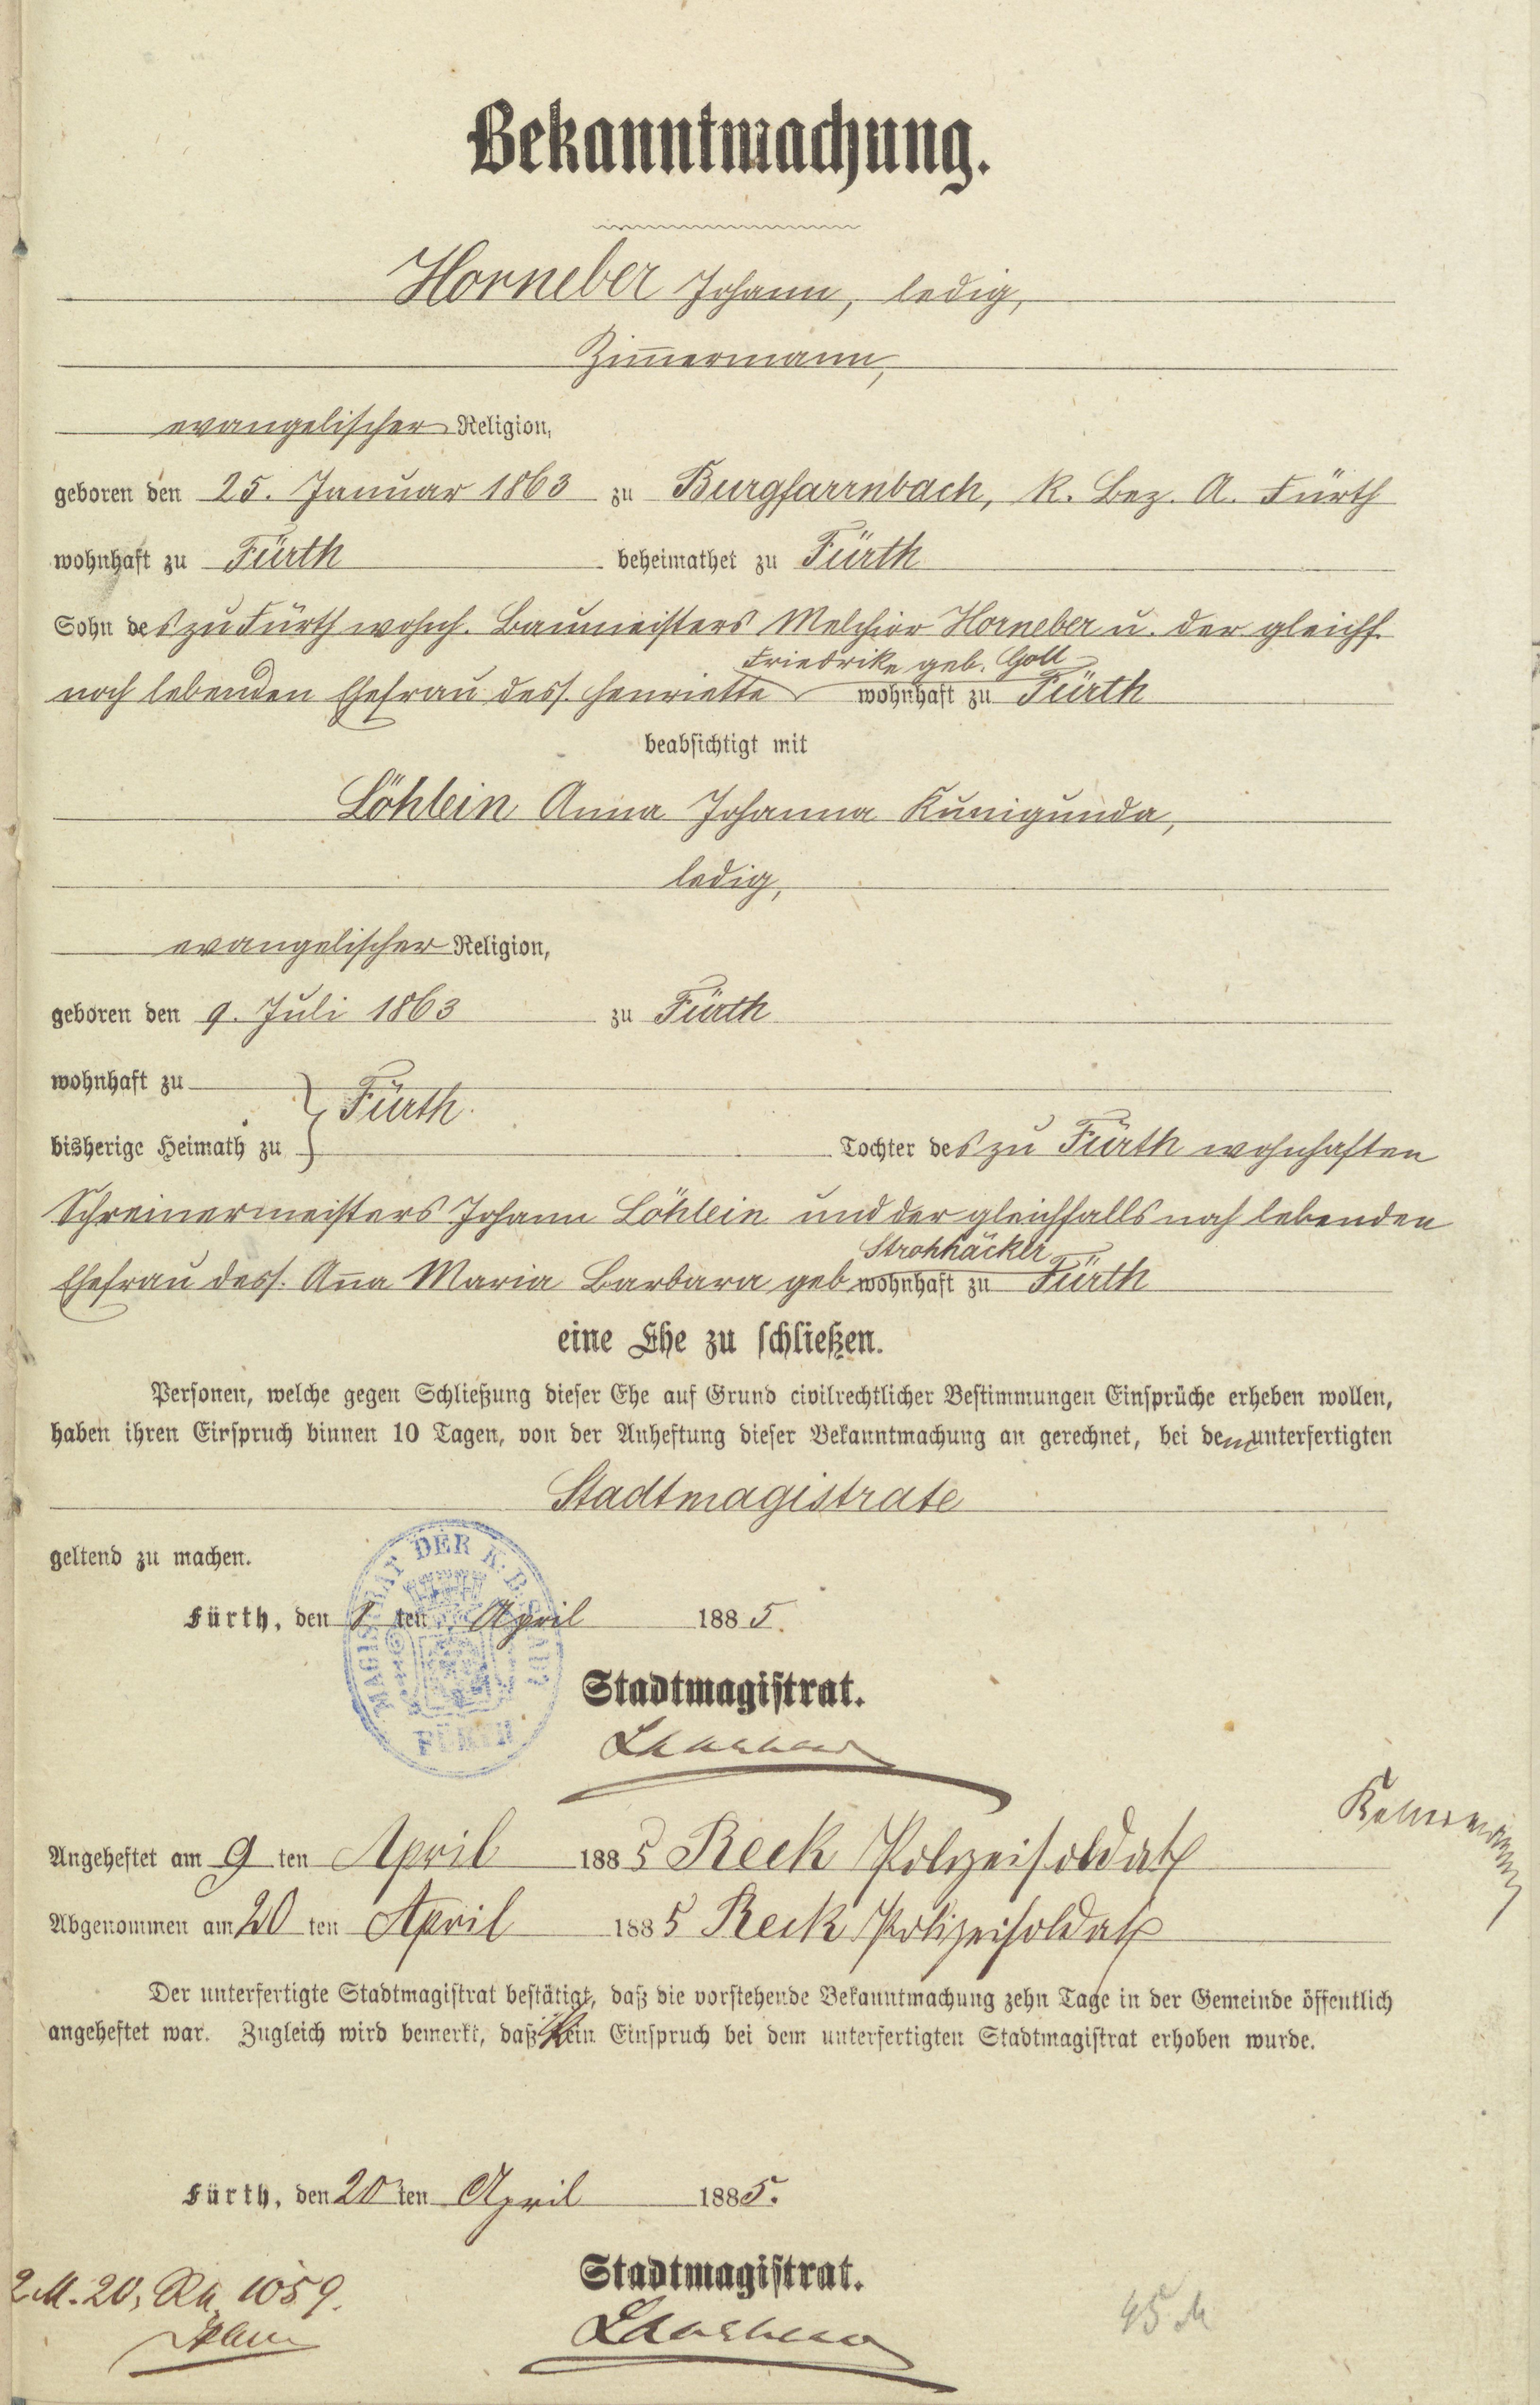 Bekanntmachung.
Horneber Johann, ledig,
Zimmermann,
evangelischer Religion,
geboren den 25. Januar 1863 zu Burgfarrnbach, k. Bez. A. Fürth
wohnhaft zu Fürth beheimathet zu Fürth
Sohn des zu Fürth wohnh. Baumeisters Melchior Horneber u. der gleichf.
Friedrike geb. Goll
noch lebenden Ehefrau dess. Henriette wohnhaft zu Fürth
beabsichtigt mit
Löhlein Anna Johanna Kunigunda,
ledig,
evangelischer Religion,
geboren den 9. Juli 1863 zu Fürth
wohnhaft zu
Fürth.
bisherige Heimath zu Tochter des zu Fürth wohnhaften
Schreinermeisters Johann Löhlein und der gleichfalls noch lebenden
Strohhäcker
Ehefrau dess. Anna Maria Barbara geb. wohnhaft zu Fürth
eine Ehe zu schließen.
Personen, welche gegen Schließung dieser Ehe auf Grund civilrechtlicher Bestimmungen Einsprüche erheben wollen,
haben ihren Einspruch binnen 10 Tagen, von der Anheftung dieser Bekanntmachung an gerechnet, bei dem unterfertigten
Stadtmagistrate
geltend zu machen.
MAGISTRAT DER K. B. FÜRTH
Fürth, den 8 ten April 1885.
Stadtmagistrat.
Angeheftet am 9 ten April 1885 Reck Polizeisoldat
Abgenommen am 20 ten April 1885 Reck Polizeisoldat
Der unterfertigte Stadtmagistrat bestätigt, daß die vorstehende Bekanntmachung zehn Tage in der Gemeinde öffentlich
angeheftet war. Zugleich wird bemerkt, daß kein Einspruch bei dem unterfertigten Stadtmagistrat erhoben wurde.
Fürth, den 20 ten April 1885.
Stadtmagistrat.
2 M. 20, 1059.
45 M